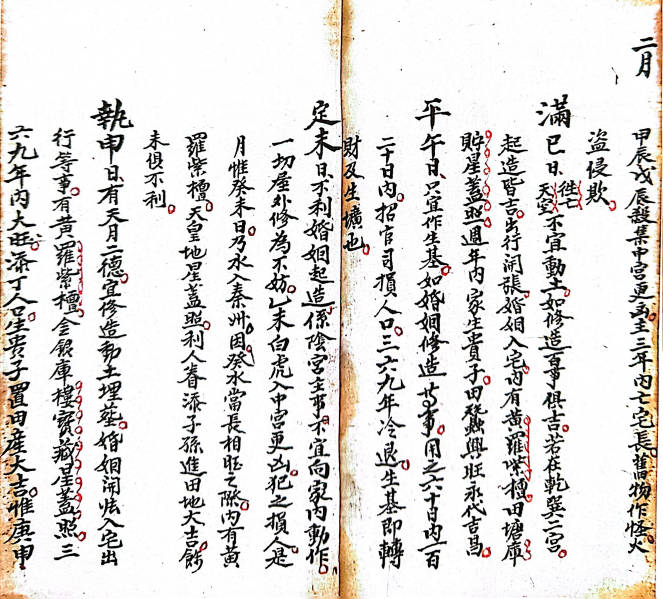 二月
甲辰戊辰殺集中宮更凶主三年內亡宅長舊物作怪火
盜侵欺
滿巳日往亡天空不宜動土如修造百事俱吉若在乾巽二宮
起造皆吉出行開張婚姻入宅內有黃羅紫檀田塘庫
貯星蓋照週年內家生貴子田蠶興旺永代吉昌
平午日只宜作生基如婚姻修造等事用之六十日內一百
二十日內招官司損人口三六九年冷退生基即轉
財及生壙也
定未日不利婚姻起造係陰宮主事不宜向家內動作
一切屋外修為不妨乙未白虎入中宮更凶犯之損人是
月惟癸未日乃水入秦州因癸水當長相旺之際內有黃
羅紫檀天皇地星蓋照利人眷添子孫進田地大吉餘
未俱不利
執申日有天月二德宜修造動土埋葬婚姻開張入宅出
行等事有黃羅紫檀金銀庫樓寶藏星蓋照三
六九年內大旺添丁人口生貴子置田產大吉惟庚申